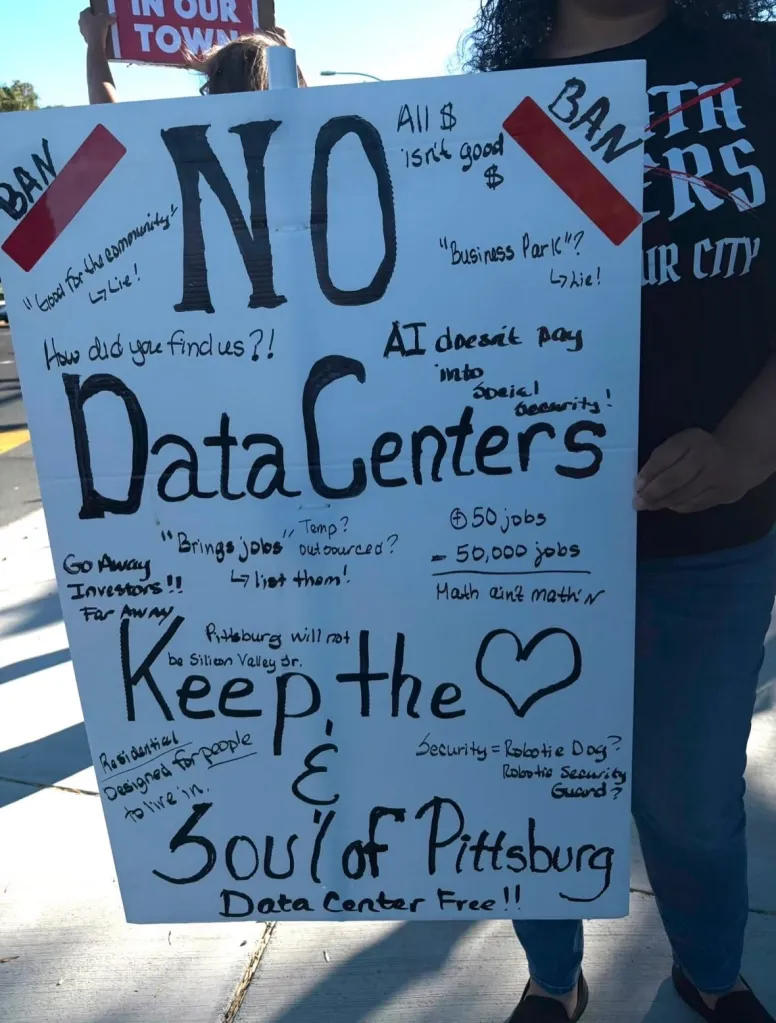 IN OUR
TOWN
BAN
NO
All $
isn't good
$
BAN
TA
ERS
UR CITY
"Good for the community"
↳ Lie!
"Business Park"?
↳ Lie!
How did you find us?!
AI doesn't pay
into
Social
Security!
Data Centers
"Brings jobs" Temp?
outsourced?
↳ list them!
⊕ 50 jobs
- 50,000 jobs
Math ain't math'n
Go Away
Investors!!
Far Away
Pittsburg will not
be Silicon Valley Jr.
Keep the ♡
&
Residential
Designed for people
to live in.
Security = Robotic Dog?
Robotic Security
Guard?
Soul of Pittsburg
Data Center Free!!